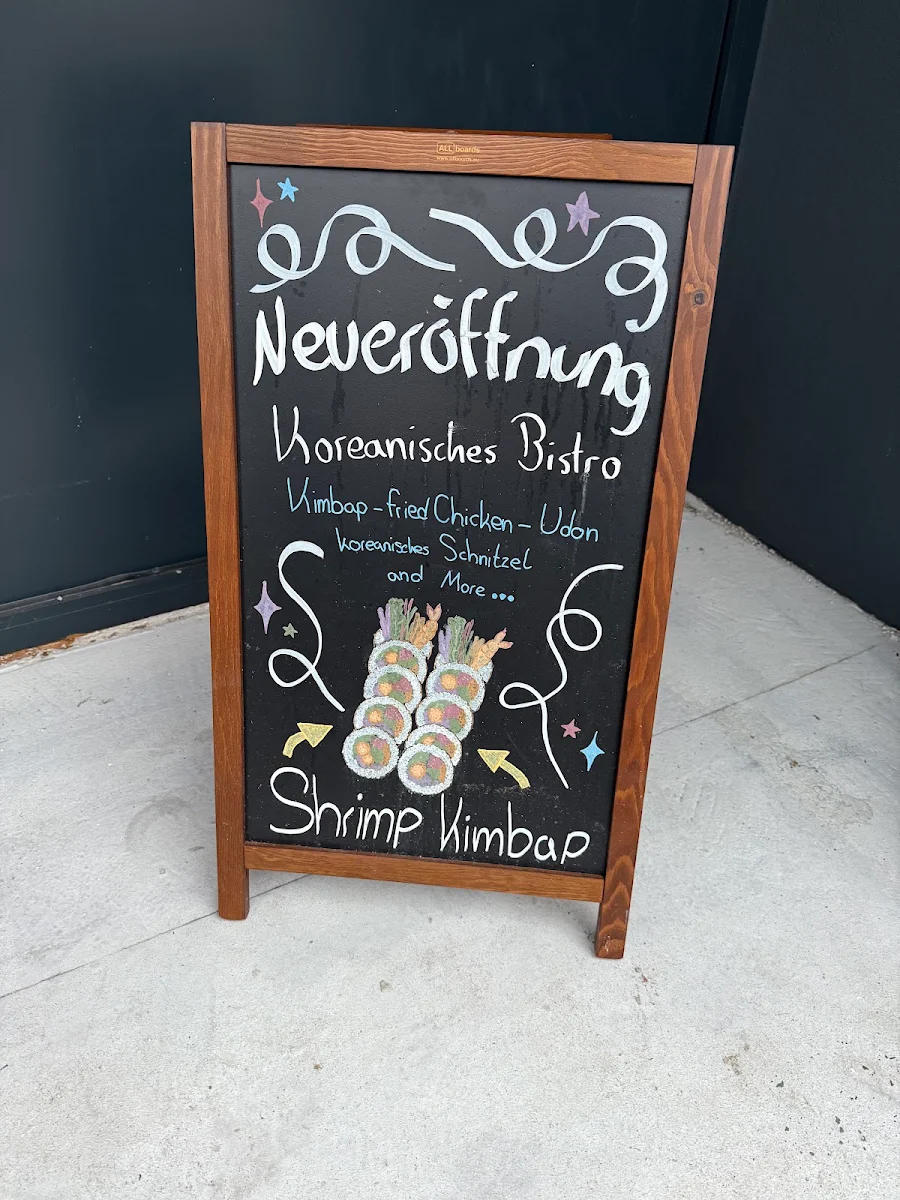 [ALL]boards
www.allboards.eu
Neueröffnung
Koreanisches Bistro
Kimbap - fried Chicken - Udon
koreanisches Schnitzel
and More ...
Shrimp Kimbap